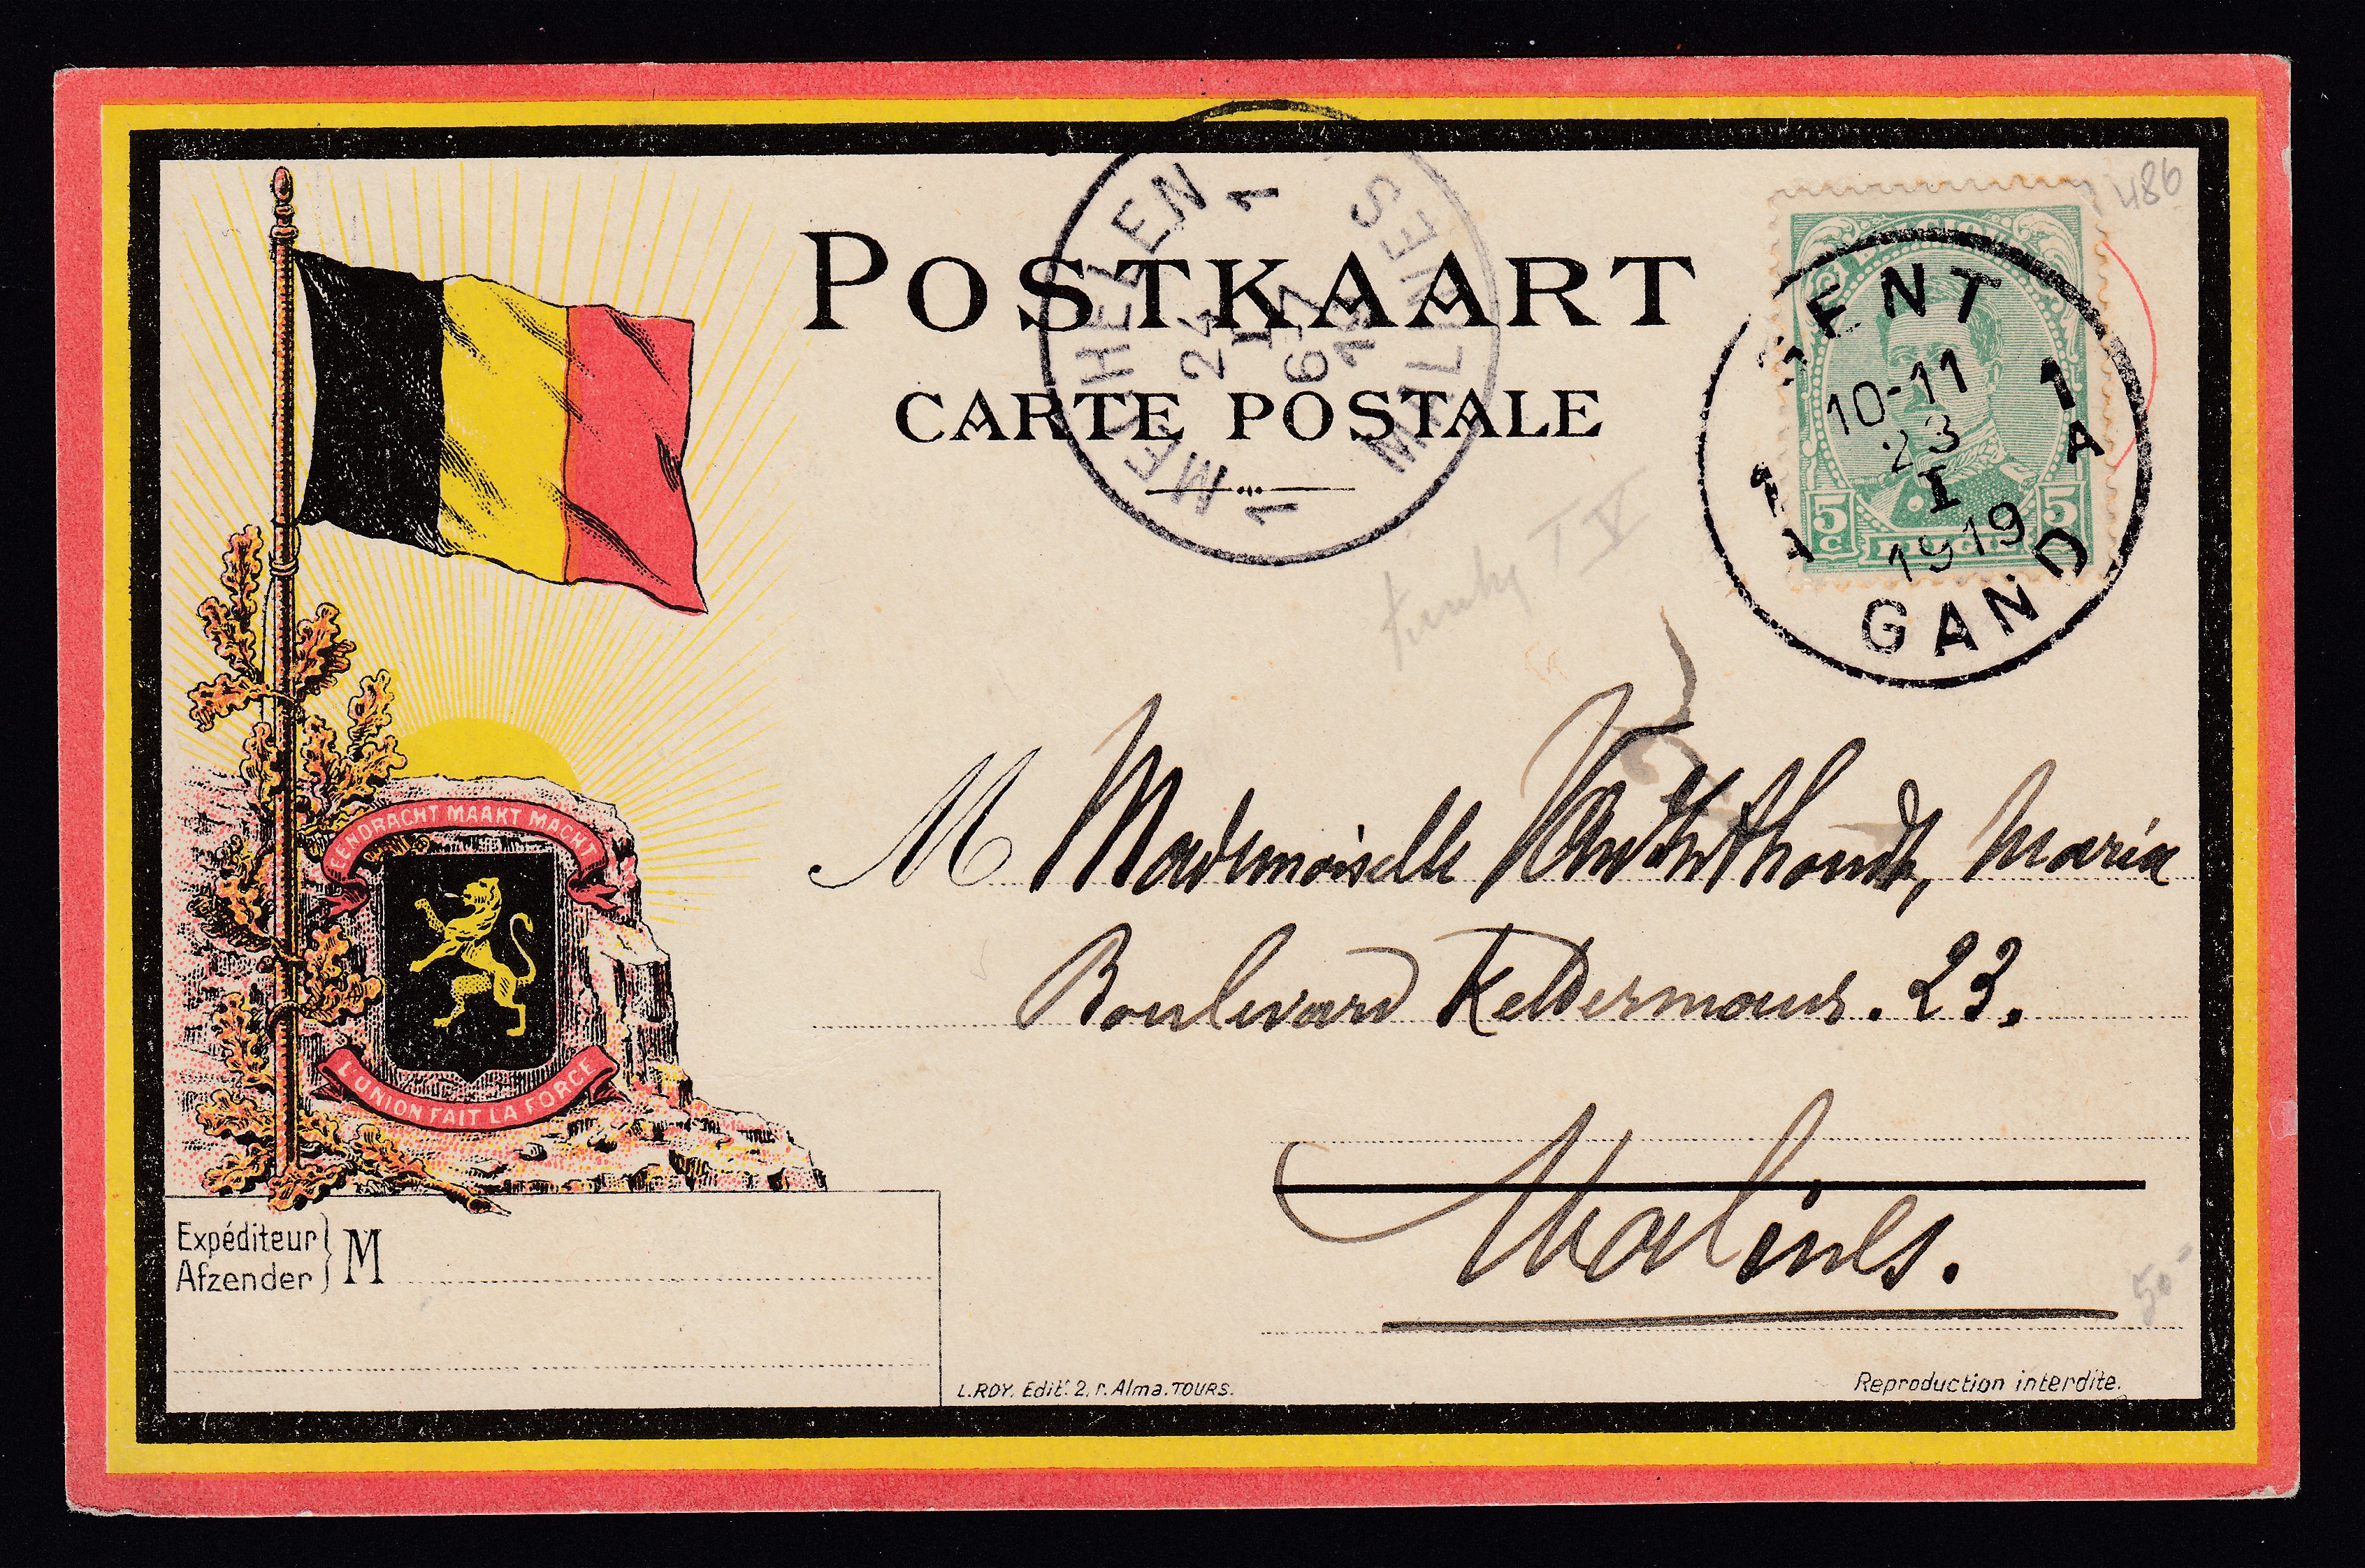 POSTKAART
CARTE POSTALE
MECHELEN
1
24
I
6-7
19
MALINES
1
GENT
1
A
10-11
23
I
1919
GAND
5 c
BELGIË
5 c
486
EENDRACHT MAAKT MACHT
L'UNION FAIT LA FORCE
M Mademoiselle Maria
Boulevard Keldermans. 23.
Malines.
50-
Expéditeur
Afzender
M
L. ROY. Edit.r 2, r. Alma. TOURS.
Reproduction interdite.